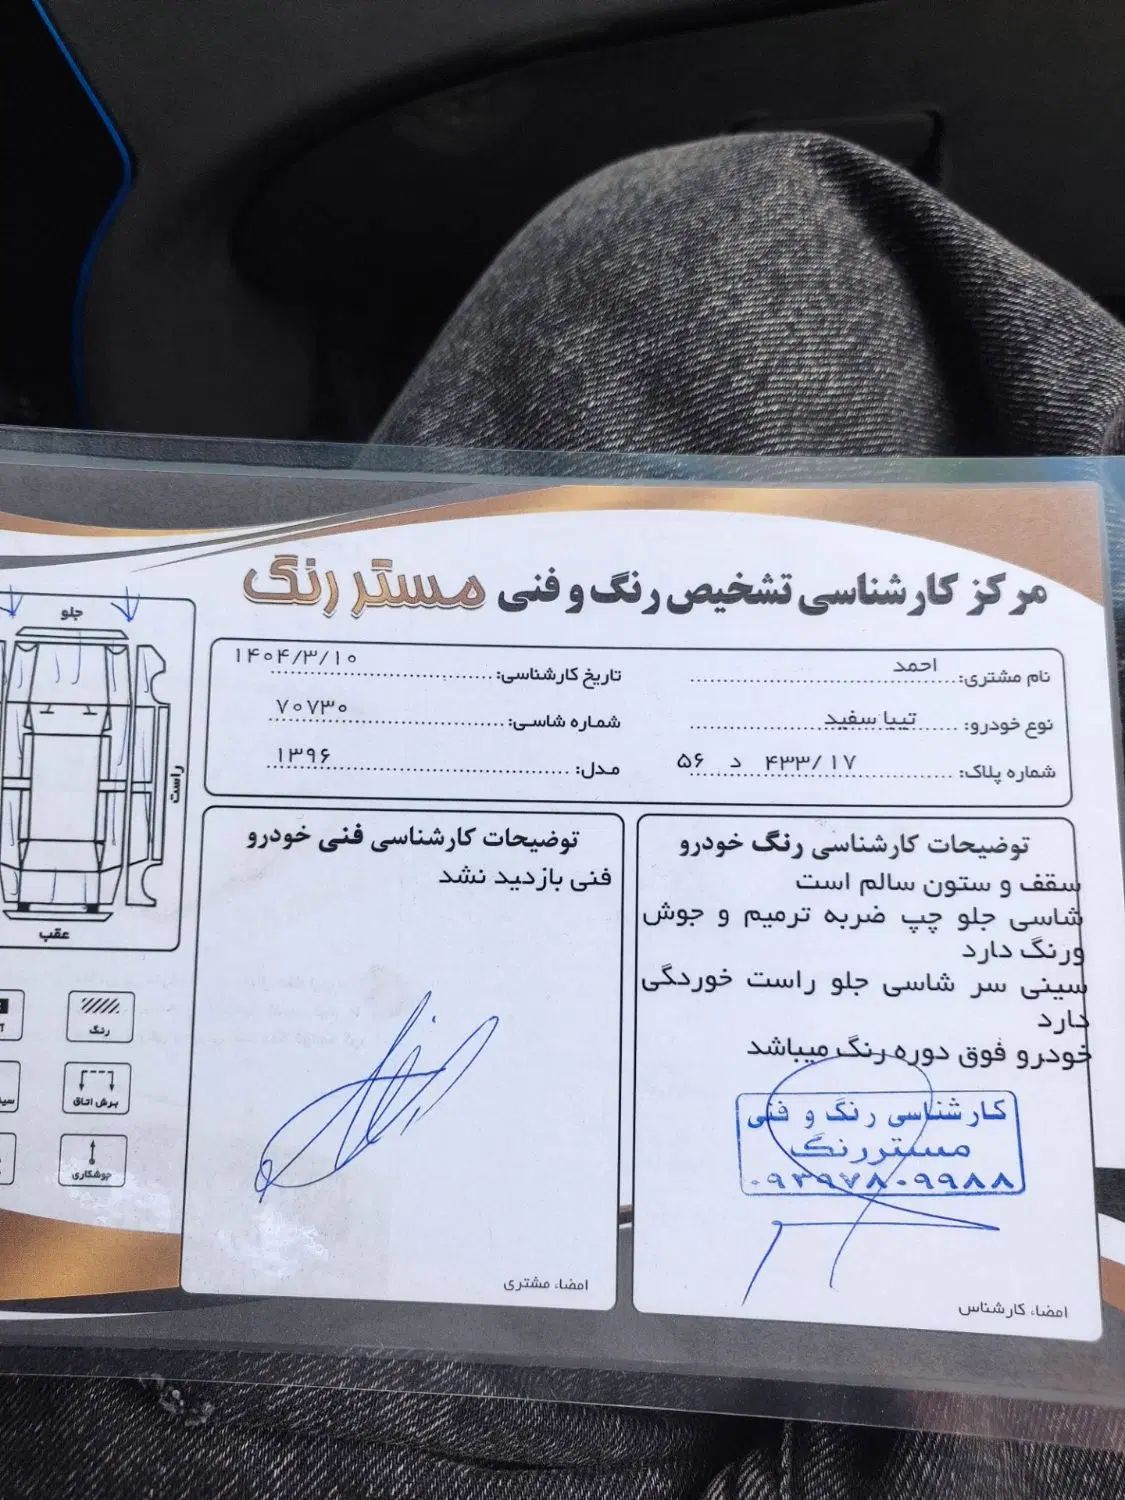 مرکز کارشناسی تشخیص رنگ و فنی مستر رنگ
نام مشتری: احمد
تاریخ کارشناسی: ۱۴۰۴/۳/۱۰
نوع خودرو: تیبا سفید
شماره شاسی: ۷۰۷۳۰
شماره پلاک: ۴۳۳/۱۷ د ۵۶
مدل: ۱۳۹۶
توضیحات کارشناسی رنگ خودرو
سقف و ستون سالم است
شاسی جلو چپ ضربه ترمیم و جوش
ورنگ دارد
سینی سر شاسی جلو راست خوردگی
دارد
خودرو فوق دوره رنگ میباشد
کارشناسی رنگ و فنی
مستررنگ
۰۹۳۹۷۸۰۹۹۸۸
امضاء کارشناس
توضیحات کارشناسی فنی خودرو
فنی بازدید نشد
امضاء مشتری
جلو
راست
عقب
رنگ
برش اتاق
جوشکاری